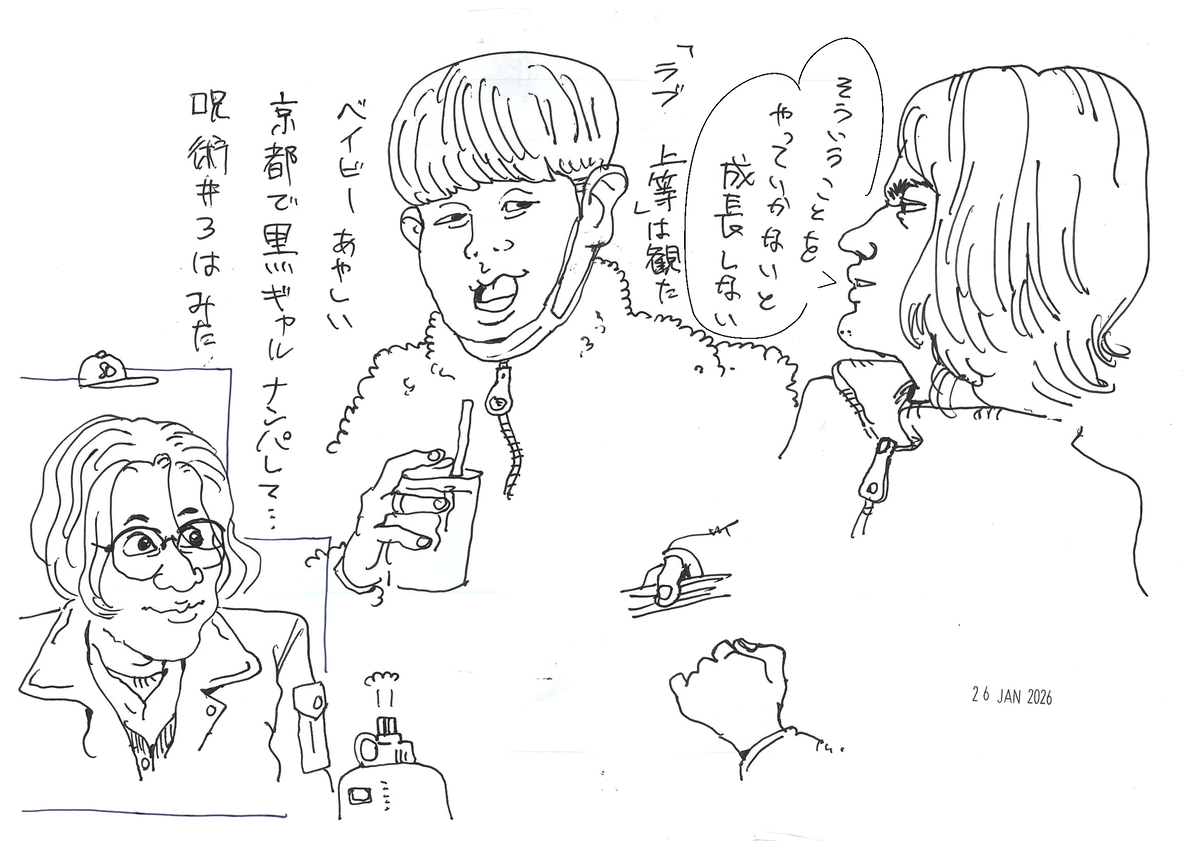 そういうことを
やっていかないと
成長しない
「ラブ上等」は観た
ベイビーあやしい
京都で黒ギャルナンパして…
呪術#3はみた
26 JAN 2026